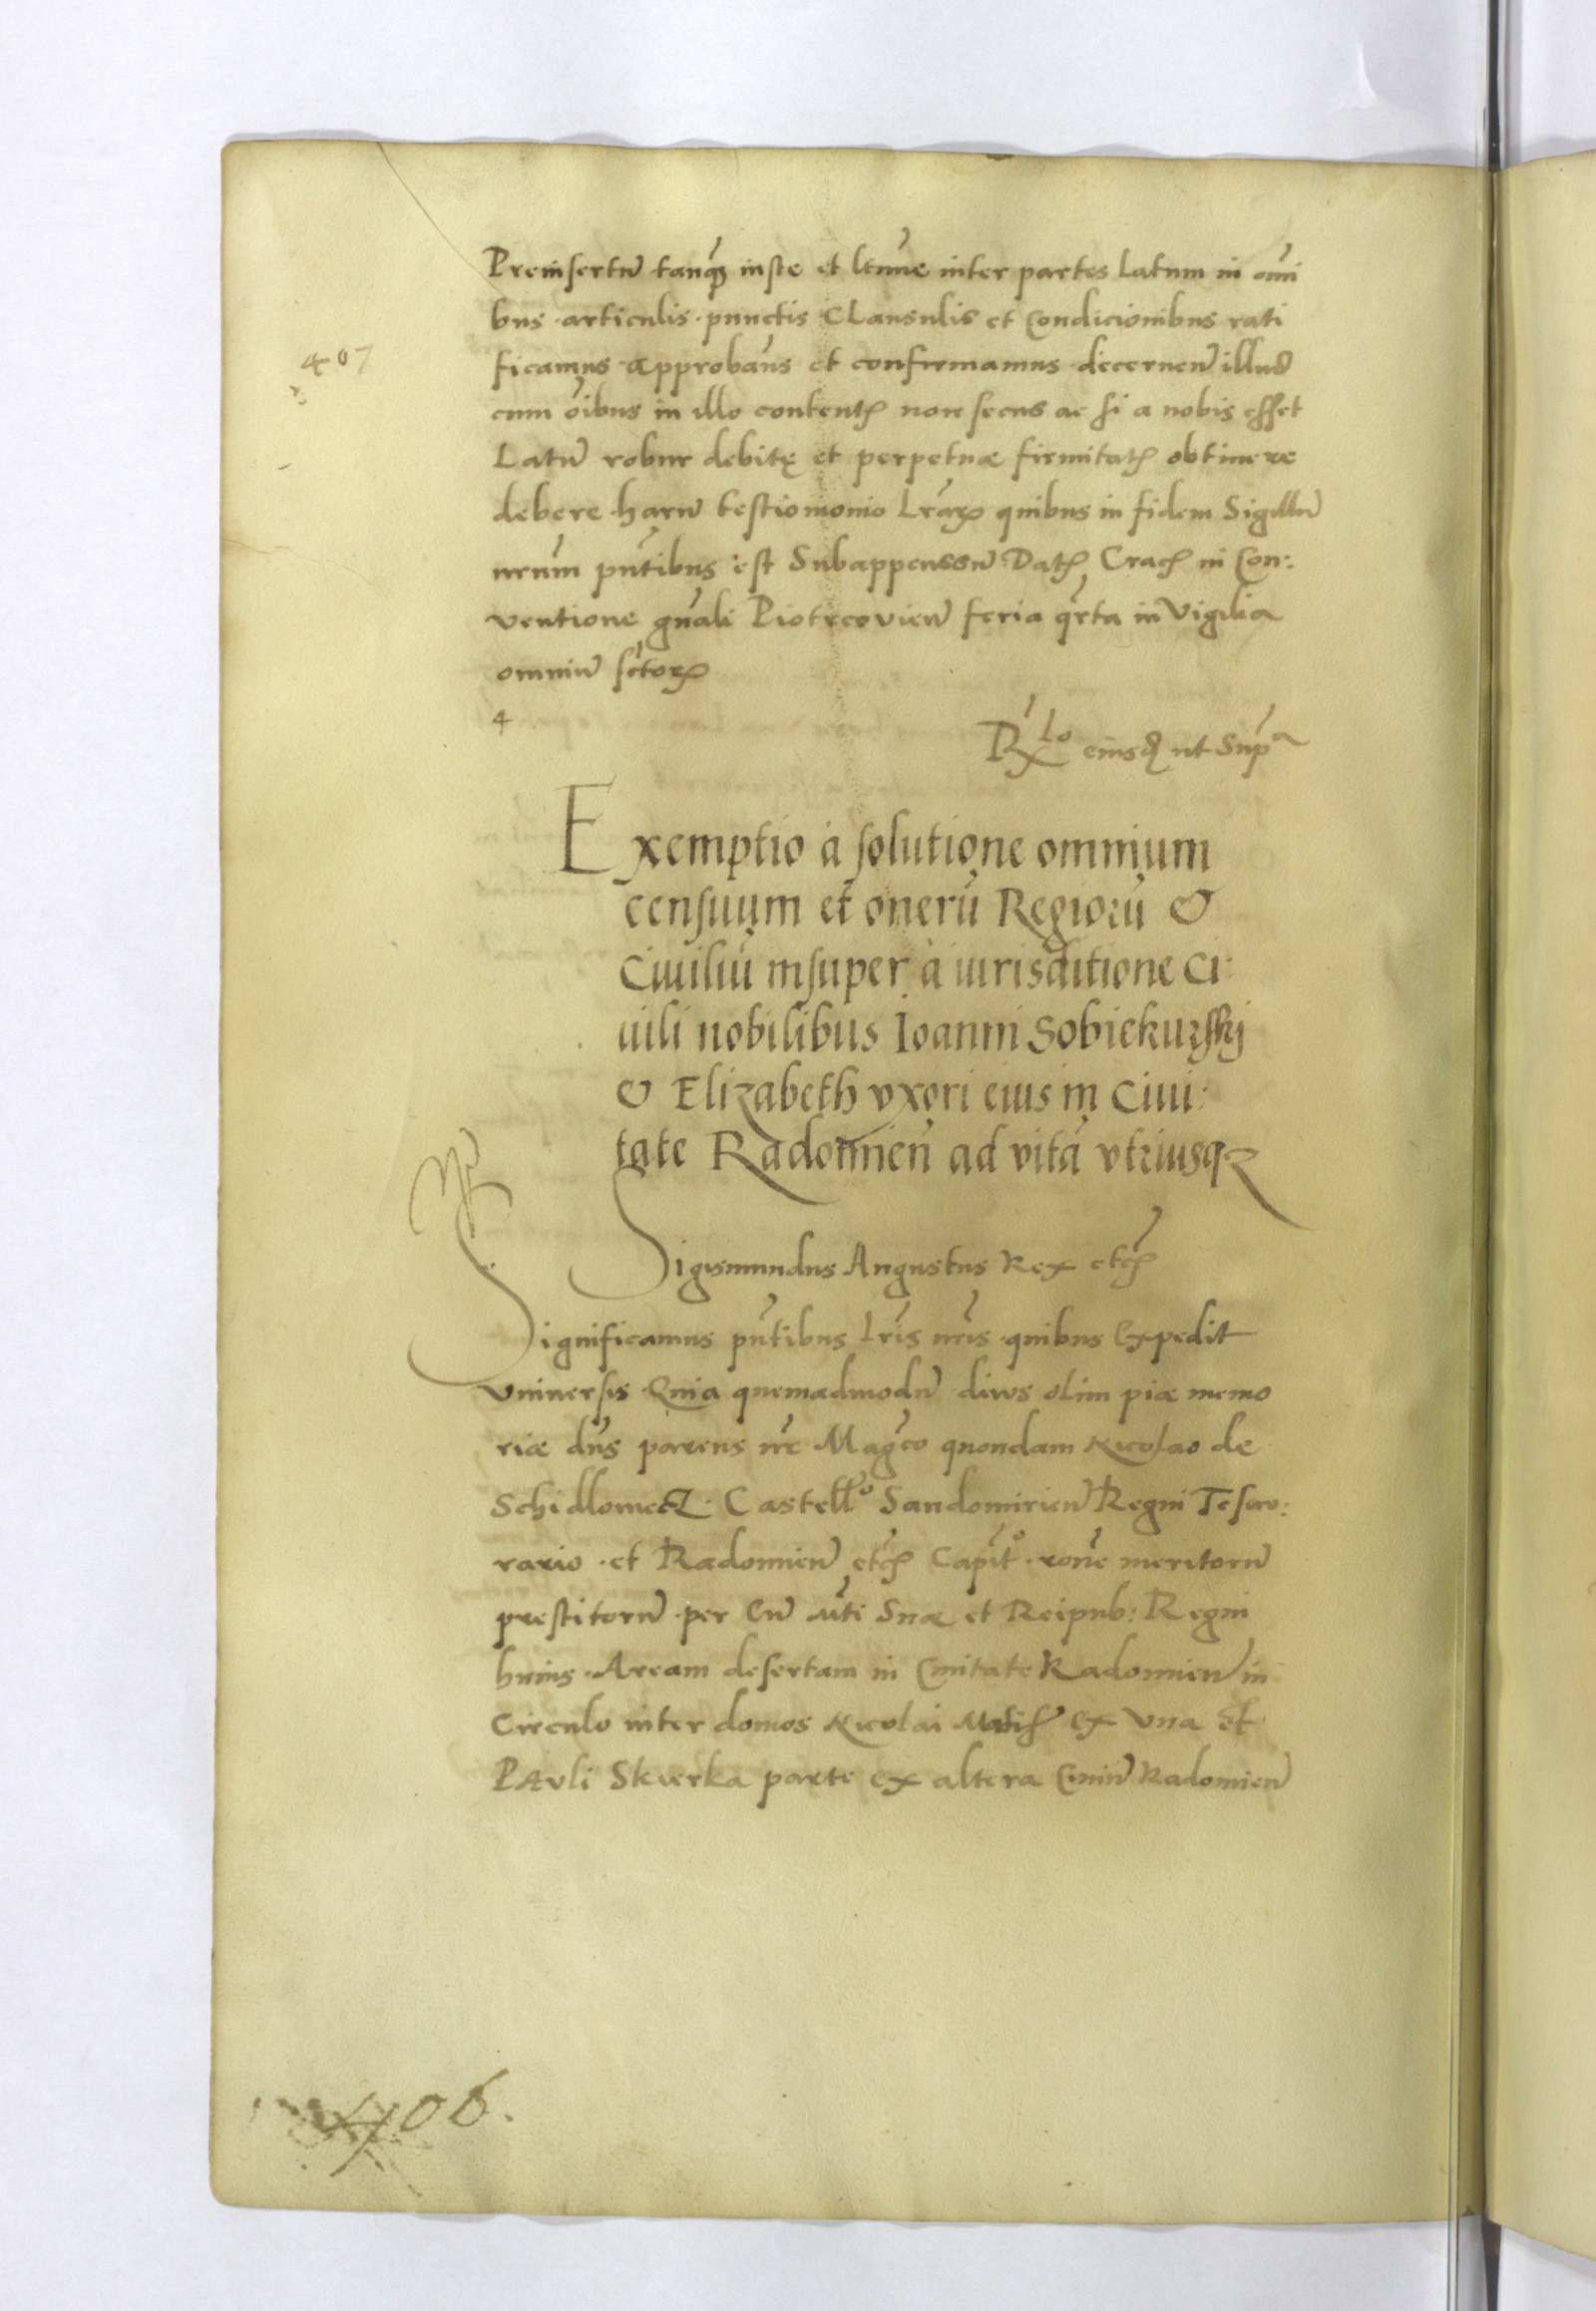 Preinsertū tanq̄ꝫ iuste et ltīme inter partes Latum in omī
bus articulis punctis Clausulis et Condicionibus rati
407
ficamus approbam̄s et confirmamus decernen̄ illud̄
cum oībus in illo contentꝭ non secus ac si a nobis esset
Latū robur debitę et perpetuæ firmitatꝭ obtinere
debere harū testiomonio Lrāꝝ quibus in fidem Sigillū
nrūm pn̄tibus est Subappenssū Datꝭ Cracꝭ in Con:
ventione gn̄ali Piotrcovien̄ feria qr̄ta in Vigilia
omniū sc̄toꝝ
4
Rlō eiusdꝫ ut Supᵃ
Exemptio à solutione omnium
censuum et onerū Regiorū &
Ciuiliū insuper à iurisditione Ci:
uili nobilibus Ioanni Sobiekurski
& Elizabeth vxori eius in Ciui:
tate Radomien̄ ad vitā vtriusqꝫ
Sigismundus Augustus Rex etcꝭ
Significamus pn̄tibus Lrīs nrīs quibus Expedit
Vniuersis Quia quemadmodū divus olim piæ memo
riæ dn̄s parens nr̄ Magco quondam Nicolao de
Schidlomecz Castellō Sandomirien̄ Regni Tesau:
rario et Radomien̄ etcꝭ Capitº rōne meritorū
prestitorū per Eū Mti Suæ et Reipub: Regni
huius Aream desertam in Ciuitate Radomien̄ in
Circulo inter domos Nicolai ex Vna et
Pauli Skverka parte ex altera Ciuiū Radomien̄
406.